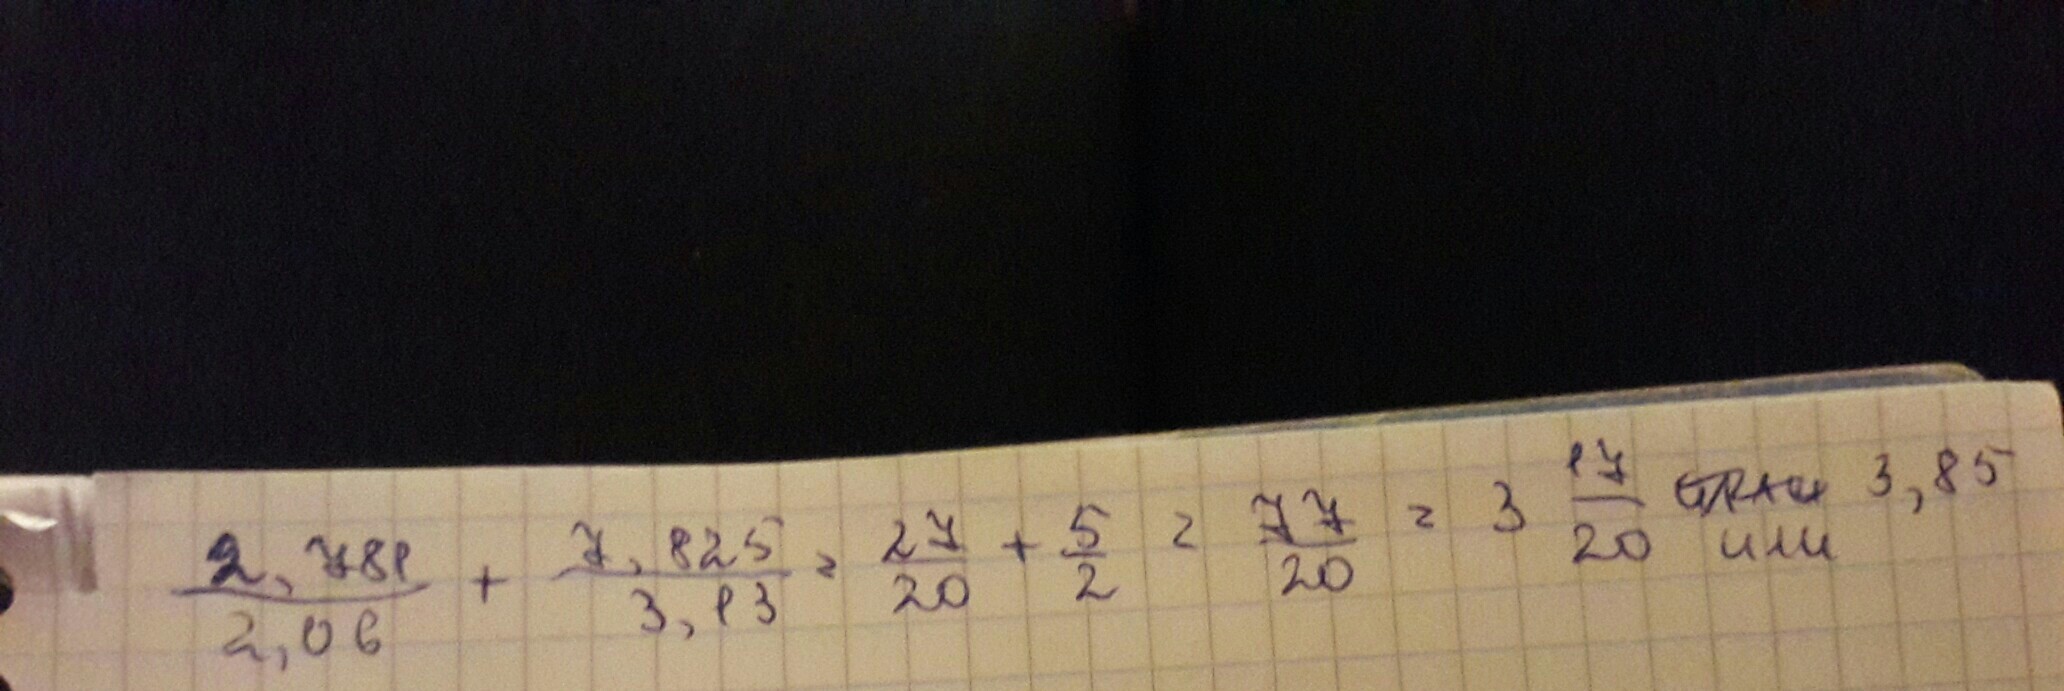 2,781/2,06 + 7,825/3,13 = 27/20 + 5/2 = 77/20 = 3 17/20 или 3,85